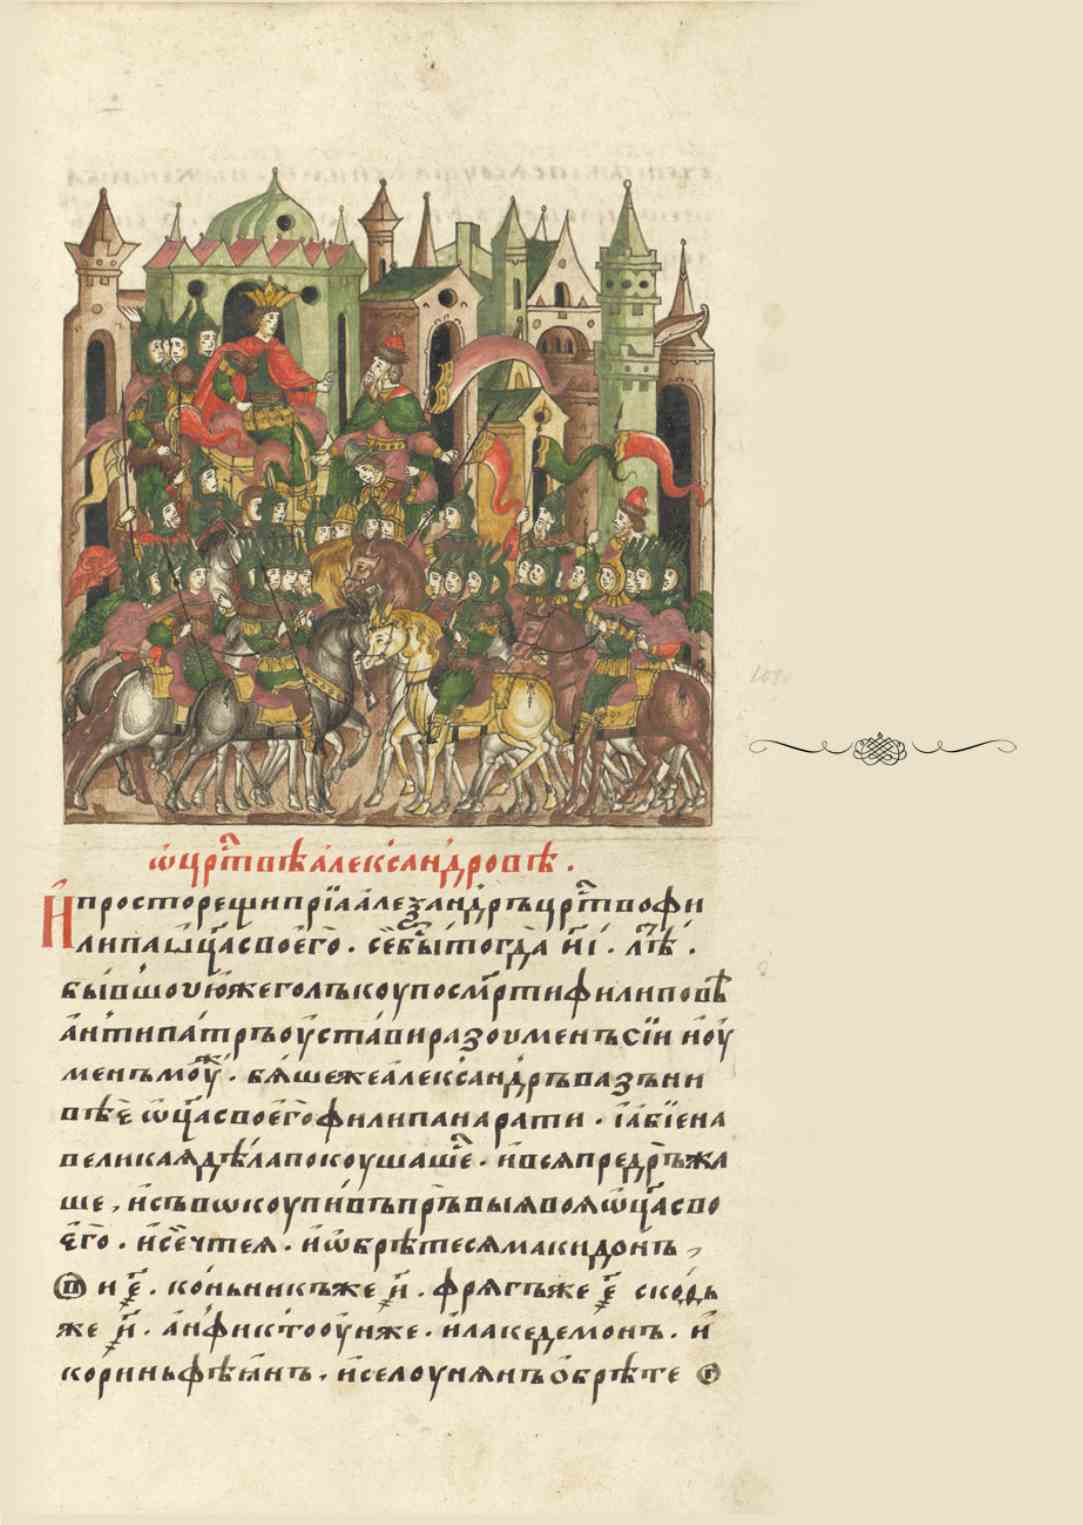 ѡ црⷭ҇твѣ алеѯандровѣ .
И просто рещи прїа алеѯандръ црⷭ҇тво фи
липа ѡц҃а своего . се бы тогда н҃і . лѣⷮ .
бывшоу юже голъкоу по смр҃ти филиповѣ
антипатръ оустави разоуменъ сїи и оу
менъ моуⷤ . бѧше же алеѯандръ въ
ѡц҃а своего филипа на рати . і абїе на
великаѧ дѣла покоушашеⷭ҇ . и всѧ предръжа
ше , и съвѡкоупивъ пръвыѧ воѧ ѡц҃а сво
его . и сечте ѧ . и ѡбрѣте сѧ макидонъ ,
и ҂е҃ . коньникъ же ҂и҃ . фрѧгъ же ҂е҃
же ҂и҃ . анфиктооунже . и лакедемонъ . и
кориньѳѣанъ . и селоунѧнъ обрѣте